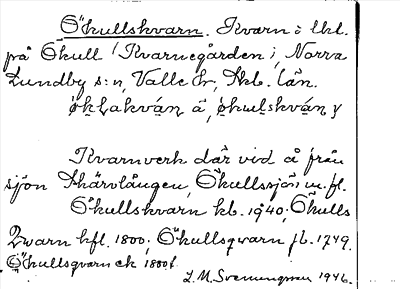 Ökullskvarn. Kvarn i lht.
på Ökull (Kvarnegården i Norra
Lundby s:n, Valle hr, Skb. län.
Kvarnverk där vid å från
sjön Skärvlången, Ökullssjön m.fl.
Ökullskvarn kb. 1940; Ökulls
Qvarn hfl. 1800; Ökullsqwarn jb. 1749.
Ökullsqvarn ck 1800t.
1946.